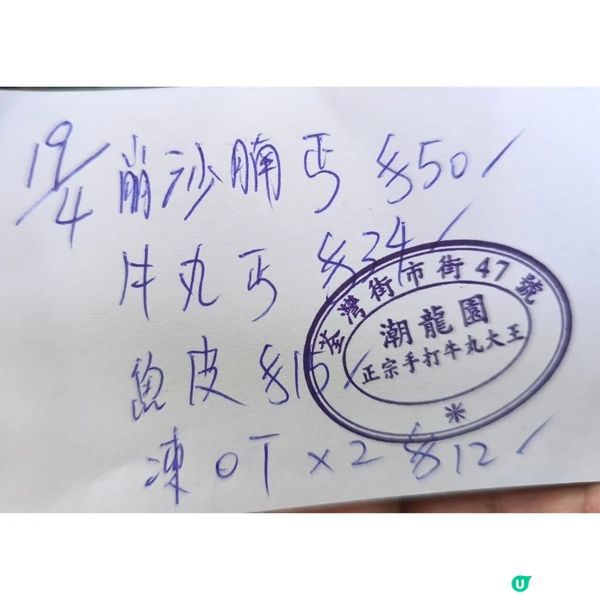 19/4 崩沙腩丐 $50/
牛丸丐 $34/
魚皮 $15/
凍OT x2 $12/
荃灣街市街47號
潮龍園
正宗手打牛丸大王
*
U